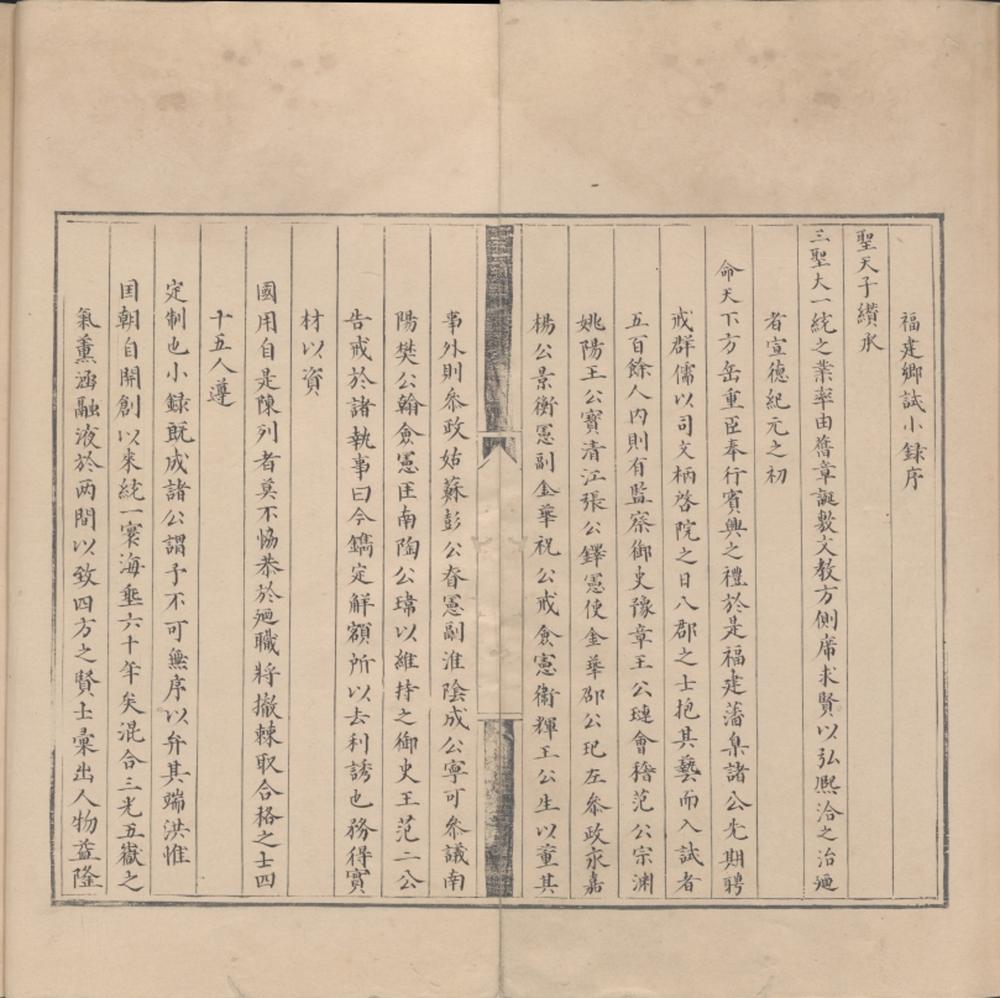 福建鄉試小録序
聖天子纘承
三聖大一統之業率由舊章誕敷文教方側席求賢以弘熙洽之治廼
者宣德紀元之初
命天下方岳重臣奉行賓興之禮於是福建藩臬諸公先期聘
戒群儒以司文柄啓院之日八郡之士抱其藝而入試者
五百餘人内則有監察御史豫章王公璉會稽范公宗渊
姚陽王公寳清江張公鐸憲使金華邵公玘左叅政永嘉
楊公景衡憲副金華祝公戒僉憲衛輝王公生以董其
事外則叅政姑蘇彭公春憲副淮陰成公寧可叅議南
陽樊公翰僉憲匡南陶公瑋以維持之御史王范二公
告戒於諸執事曰今鐫定觧額所以去利誘也務得實
材以資
國用自是陳列者莫不恊恭於廼職将撤棘取合格之士四
十五人遵
定制也小録既成諸公謂予不可無序以弁其端洪惟
国朝自開創以来統一寰海垂六十年矣混合三光五嶽之
氣薰涵融液於两間以致四方之賢士彙出人物益隆